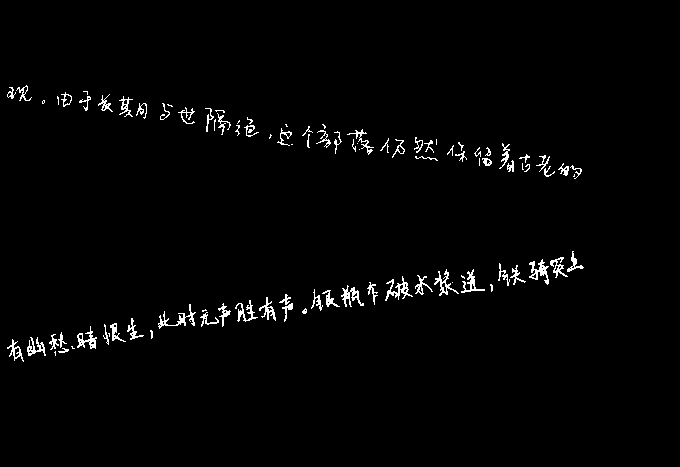 现。由于长期与世隔绝,这个部落仍然保留着古老的
有幽愁暗恨生,此时无声胜有声。银瓶乍破水浆迸,铁骑突出